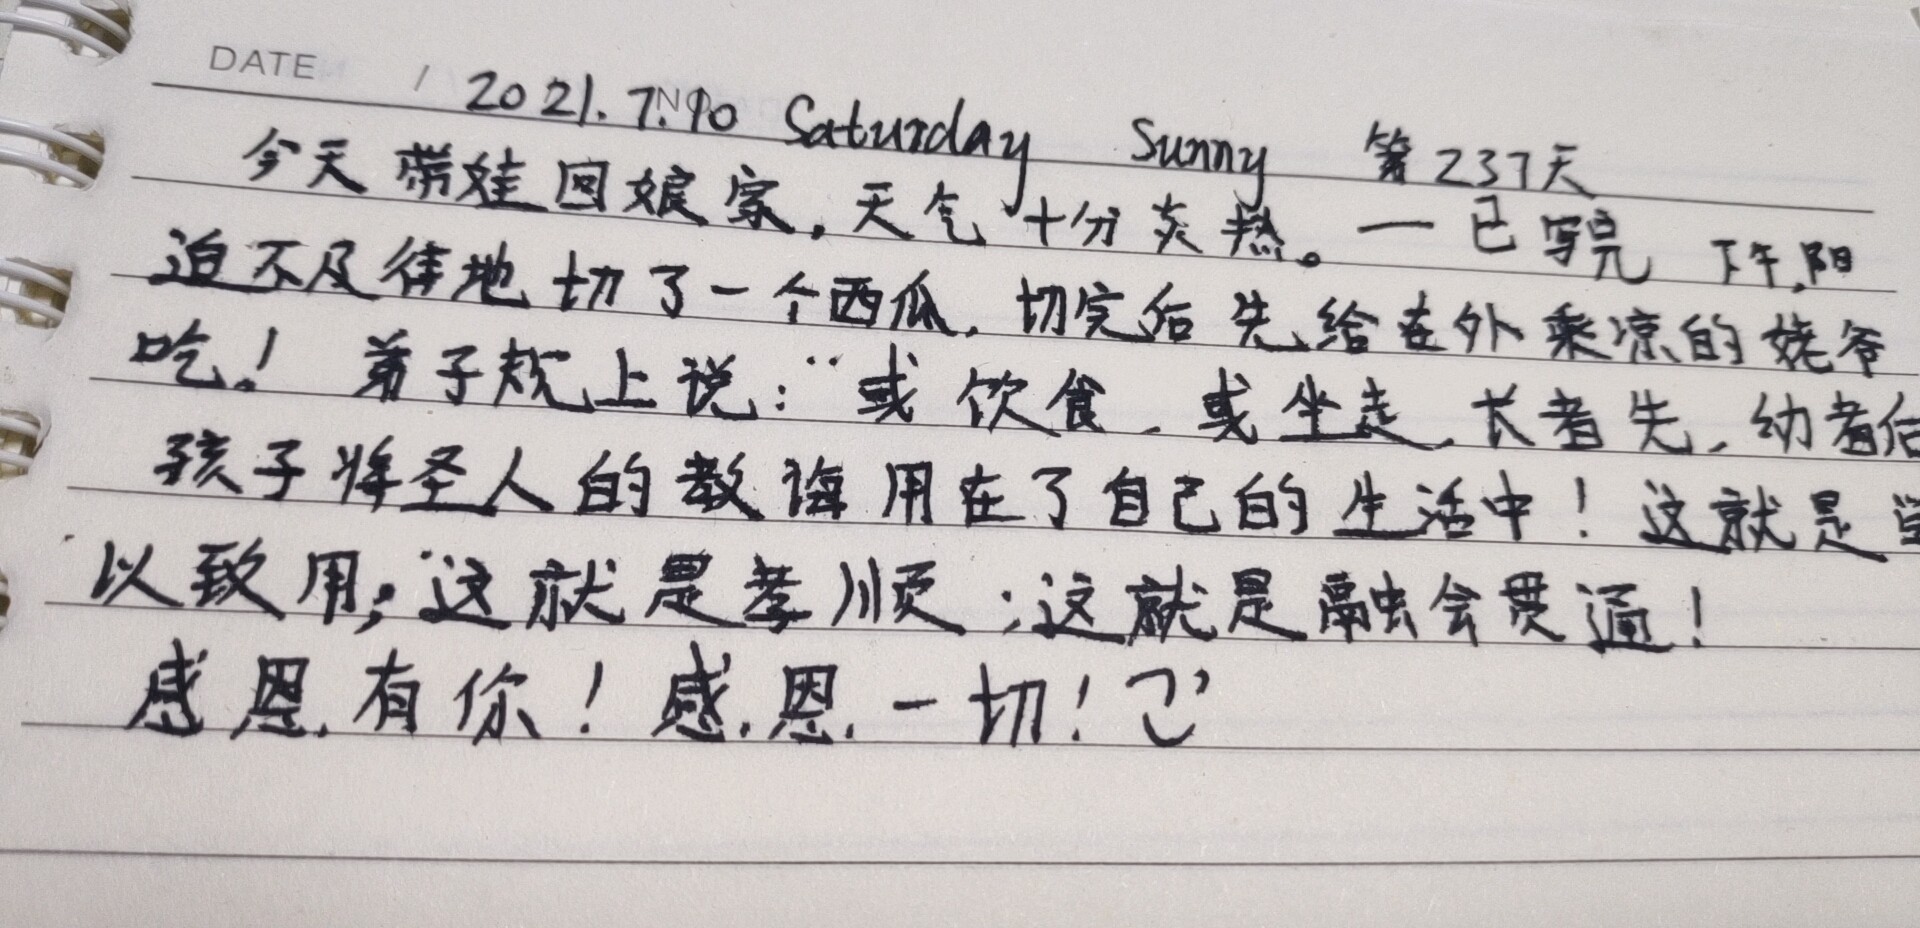 DATE / NO.
2021.7.10 Saturday Sunny 第237天
今天带娃回娘家,天气十分炎热。一已写完 下午,阳
迫不及待地切了一个西瓜,切完后先给在外乘凉的姥爷
吃!弟子规上说:“或饮食,或坐走,长者先,幼者后
孩子将圣人的教诲用在了自己的生活中!这就是
以致用;这就是孝顺;这就是融会贯通!
感恩有你!感恩一切!